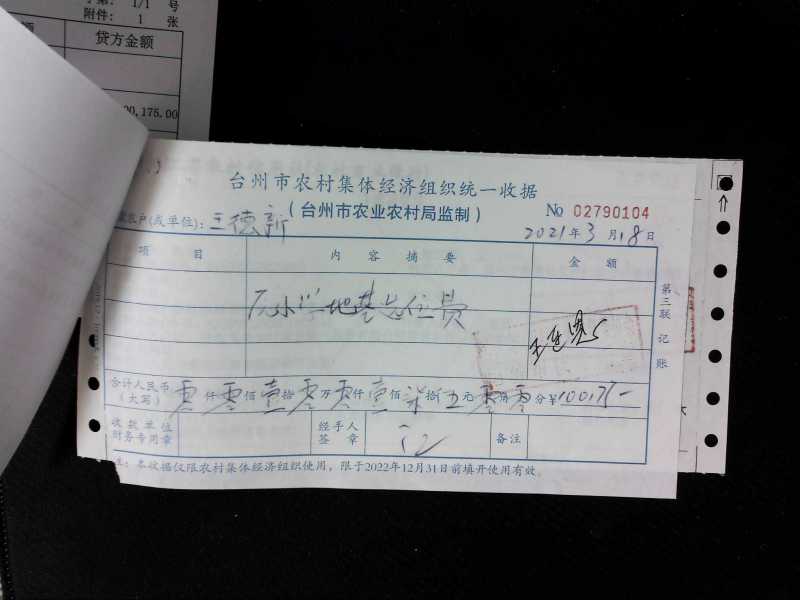 1/1 号
附件： 1 张
贷方金额
00,175.00
台州市农村集体经济组织统一收据
（台州市农业农村局监制）
No 02790104
农户(或单位)：王德新
2021年3月18日
项 目 内 容 摘 要 金 额
地基
第三联 记账
合计人民币（大写） 零仟零佰壹拾零万零仟壹佰柒拾五元零角零分￥100175-
收款单位财务专用章 经手人签章 备注
注：本收据仅限农村集体经济组织使用，限于2022年12月31日前填开使用有效。